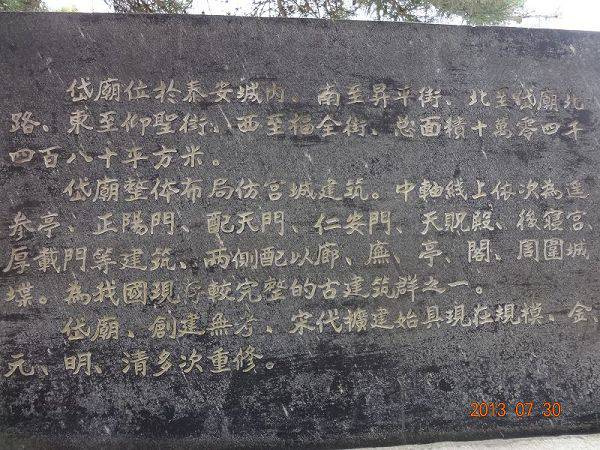 岱廟位於泰安城内。南至昇平街、北至岱廟北
路、東至仰聖街、西至福全街、总面積十萬零四千
四百八十平方米。
岱廟整体布局仿宫城建筑。中軸线上依次為遥
参亭、正陽門、配天門、仁安門、天貺殿、後寝宫、
厚載門等建筑、两側配以廊、廡、亭、閣、周圍城
堞。為我國現存較完整的古建筑群之一。
岱廟、創建無考、宋代擴建始具現在規模、金、
元、明、清多次重修。
2013 07 30